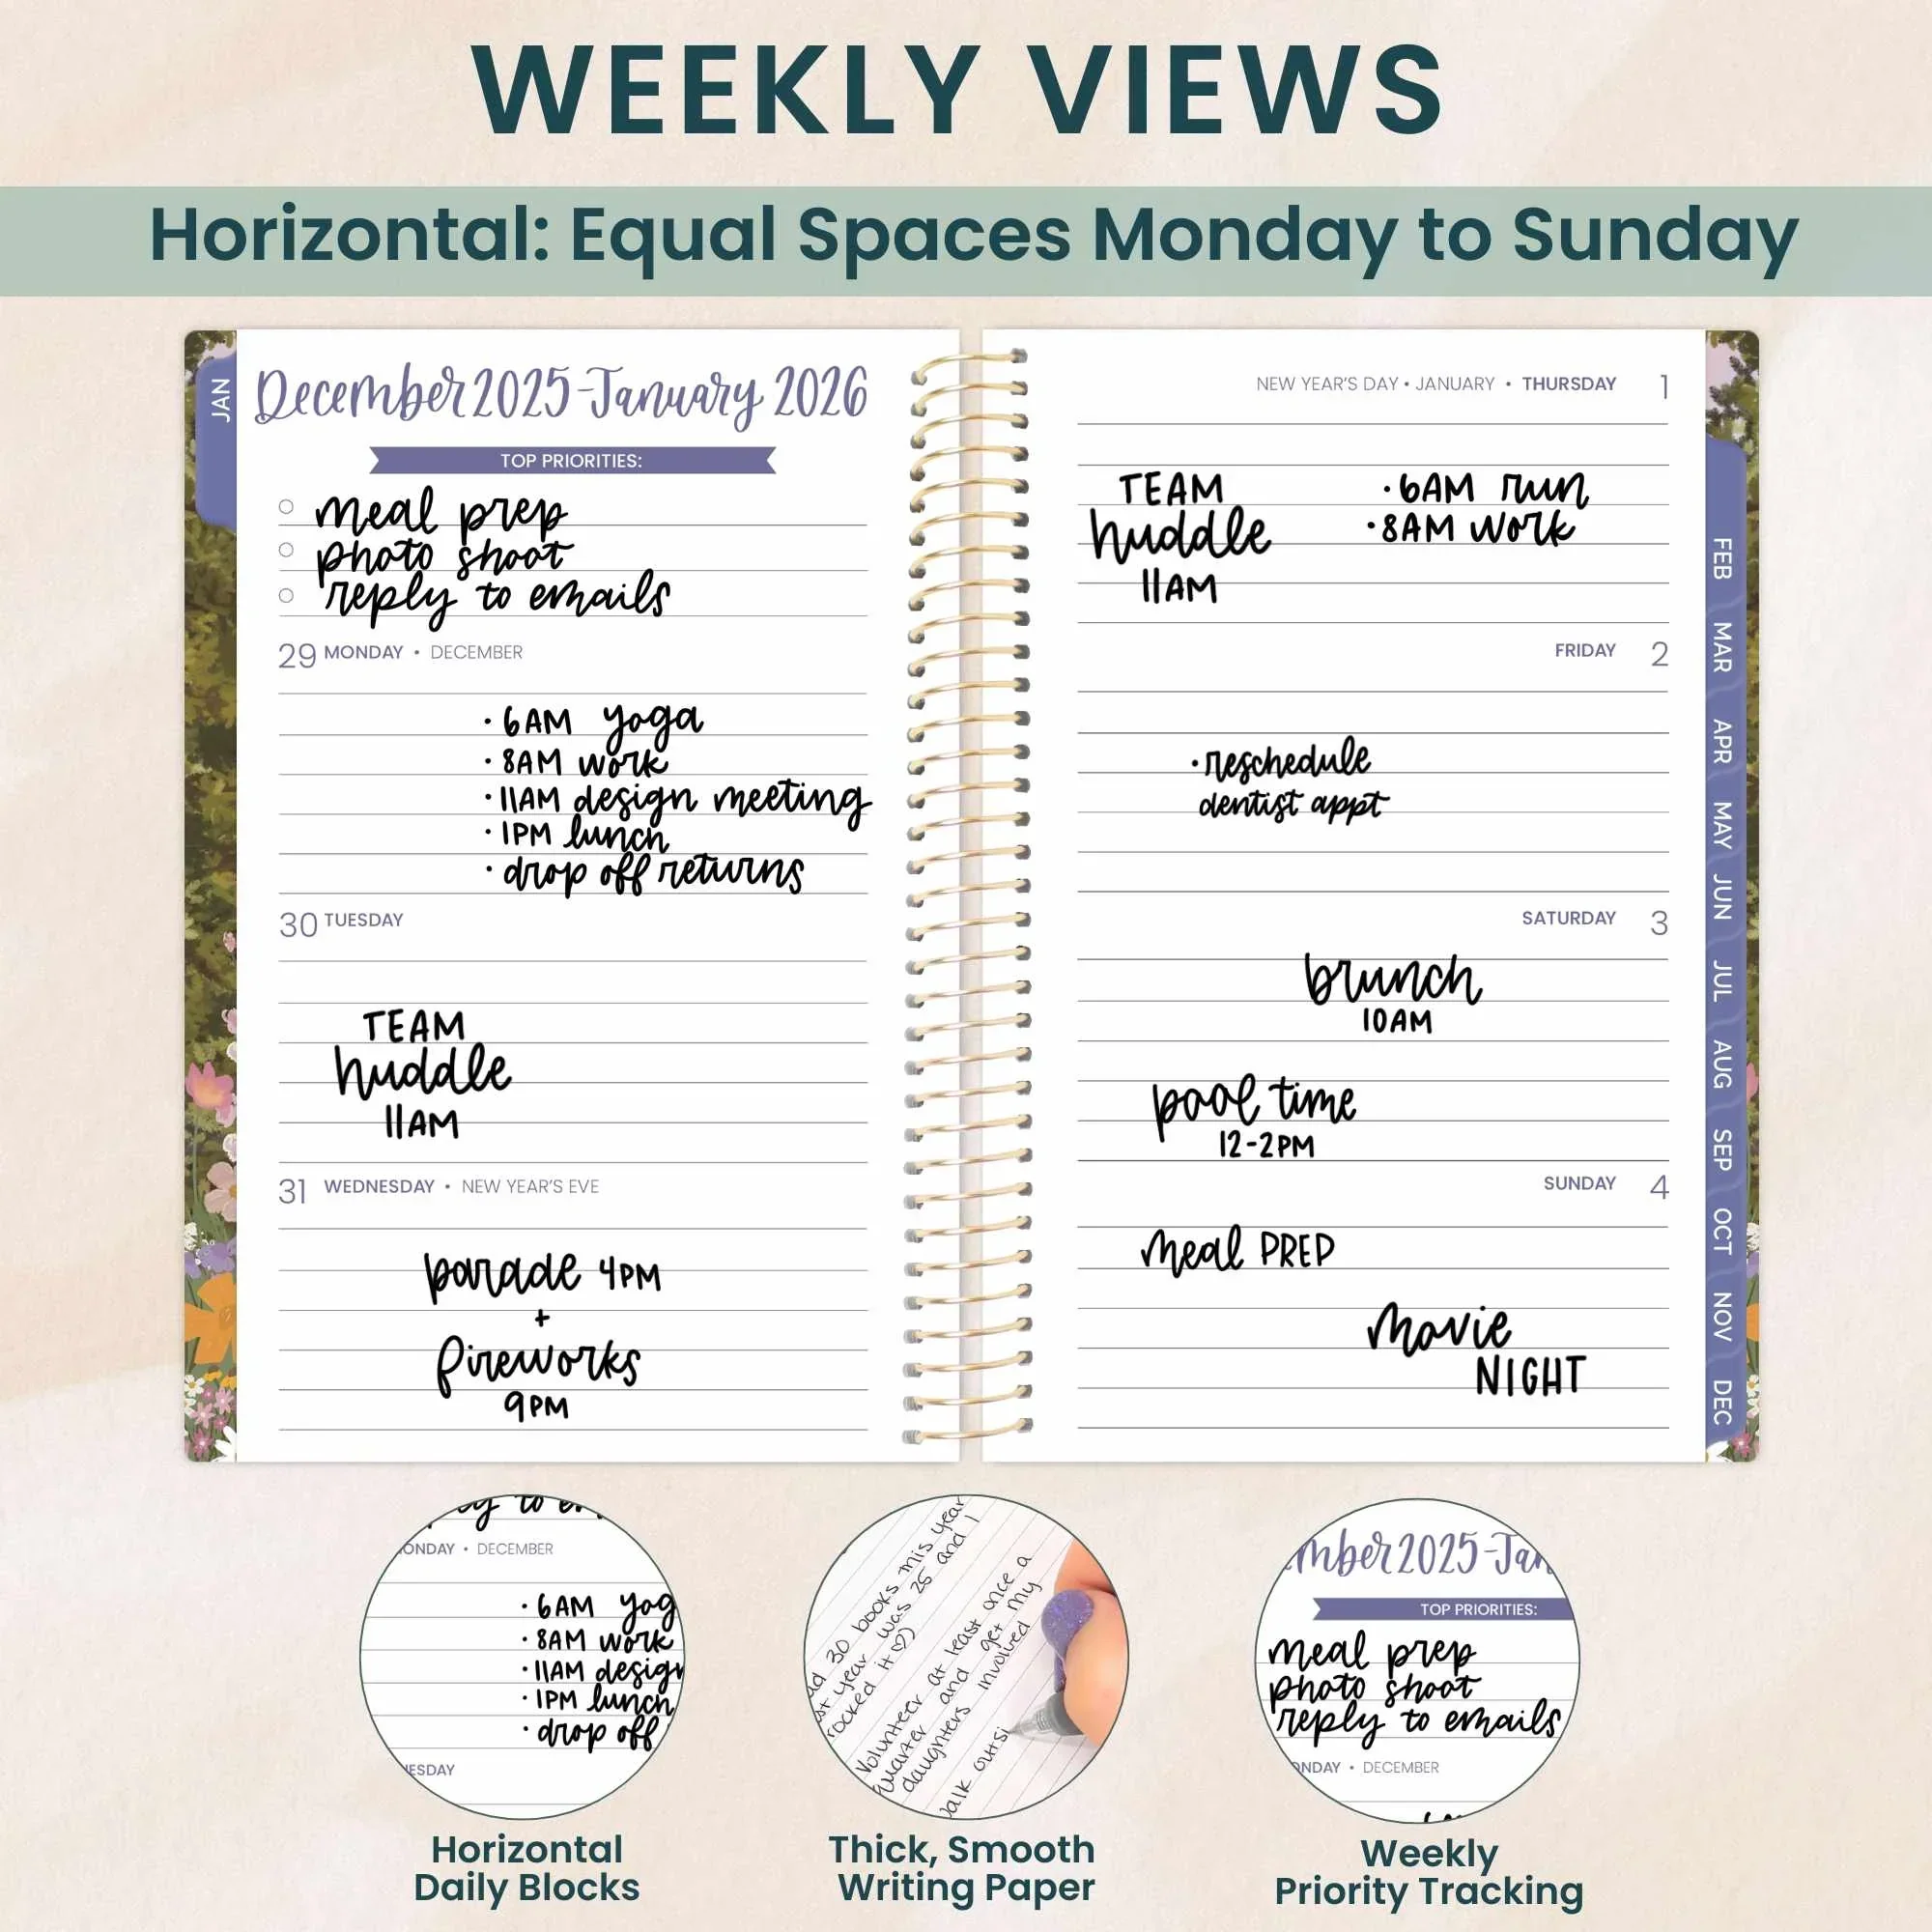 WEEKLY VIEWS
Horizontal: Equal Spaces Monday to Sunday
JAN
December 2025-January 2026
TOP PRIORITIES:
meal prep
photo shoot
reply to emails
29 MONDAY • DECEMBER
• 6AM yoga
• 8AM work
• 11AM design meeting
• 1PM lunch
• drop off returns
30 TUESDAY
TEAM
huddle
11AM
31 WEDNESDAY • NEW YEAR'S EVE
parade 4PM
+
fireworks
9PM
NEW YEAR'S DAY • JANUARY • THURSDAY 1
TEAM
huddle
11AM
• 6AM run
• 8AM work
FRIDAY 2
• reschedule
dentist appt
SATURDAY 3
brunch
10AM
pool time
12-2PM
SUNDAY 4
meal PREP
movie
NIGHT
FEB
MAR
APR
MAY
JUN
JUL
AUG
SEP
OCT
NOV
DEC
ly to e
ONDAY • DECEMBER
• 6AM yog
• 8AM work
• 11AM design
• 1PM lunch
• drop off
ESDAY
Horizontal
Daily Blocks
ad 30 books this year
st year was 25 and I
rocked it ♡)
Volunteer at least once a
quarter and get my
daughters involved
walk outsi
Thick, Smooth
Writing Paper
mber 2025-Jan
TOP PRIORITIES:
meal prep
photo shoot
reply to emails
ONDAY • DECEMBER
Weekly
Priority Tracking